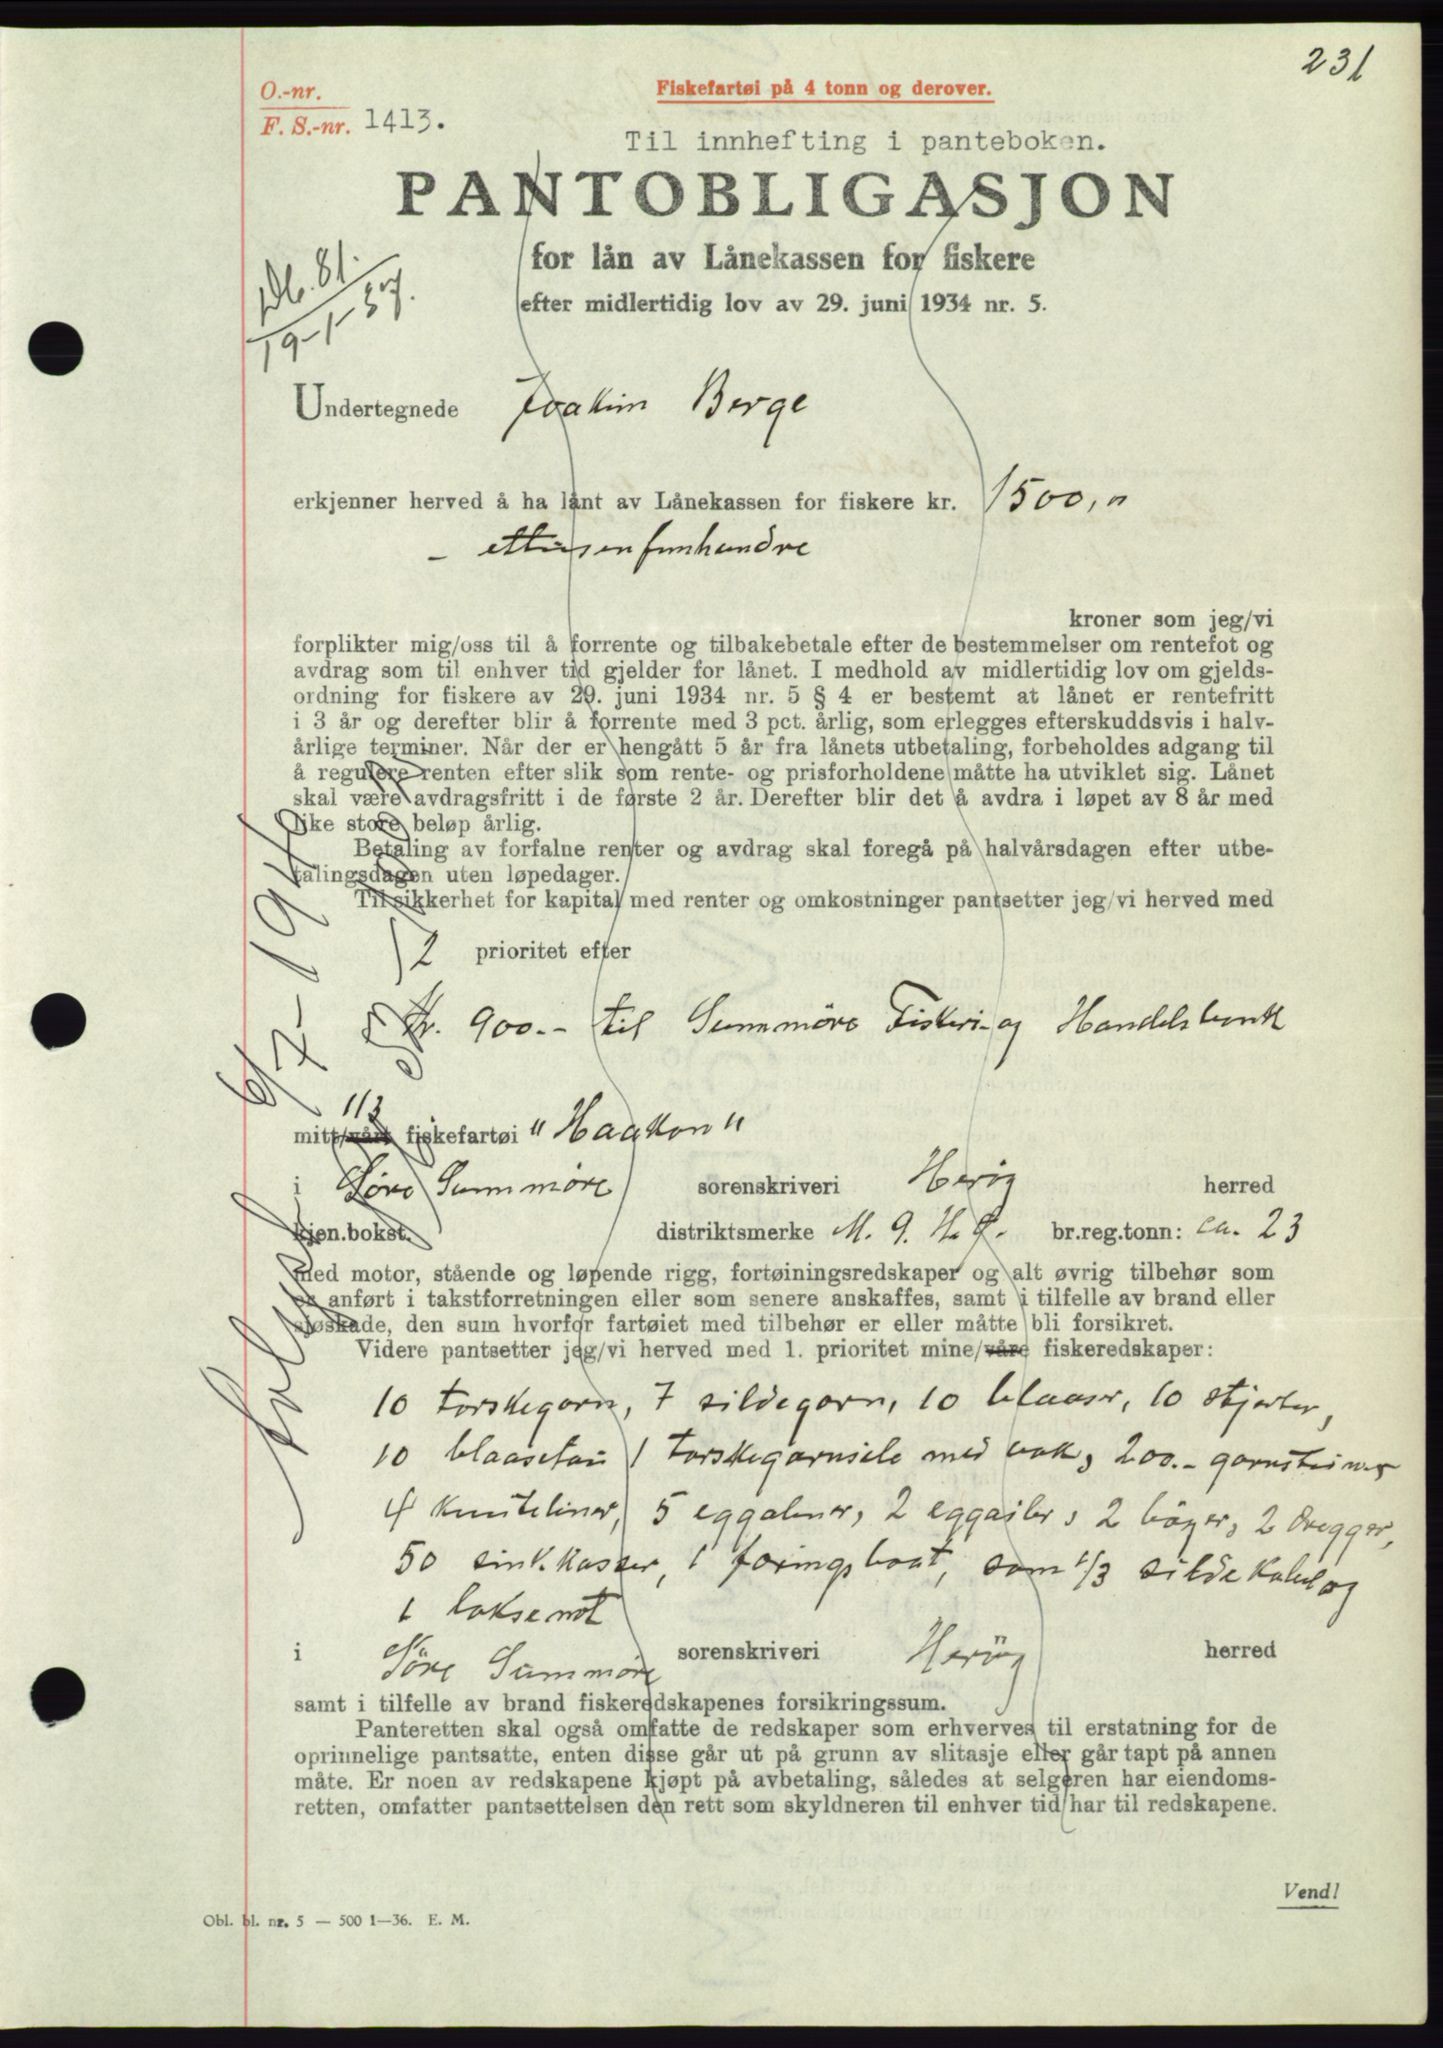 231
O.-nr.
F. S.-nr. 1413.
Fiskefartøi på 4 tonn og derover.
Til innhefting i panteboken.
PANTOBLIGASJON
for lån av Lånekassen for fiskere
efter midlertidig lov av 29. juni 1934 nr. 5.
Db. 81.
19-1-37.
Undertegnede Joakim Berge
erkjenner herved å ha lånt av Lånekassen for fiskere kr. 1500,"
- ettusenfemhundre
kroner som jeg/vi
forplikter mig/oss til å forrente og tilbakebetale efter de bestemmelser om rentefot og
avdrag som til enhver tid gjelder for lånet. I medhold av midlertidig lov om gjelds-
ordning for fiskere av 29. juni 1934 nr. 5 § 4 er bestemt at lånet er rentefritt
i 3 år og derefter blir å forrente med 3 pct. årlig, som erlegges efterskuddsvis i halv-
årlige terminer. Når der er hengått 5 år fra lånets utbetaling, forbeholdes adgang til
å regulere renten efter slik som rente- og prisforholdene måtte ha utviklet sig. Lånet
skal være avdragsfritt i de første 2 år. Derefter blir det å avdra i løpet av 8 år med
like store beløp årlig.
Betaling av forfalne renter og avdrag skal foregå på halvårsdagen efter utbe-
talingsdagen uten løpedager.
Til sikkerhet for kapital med renter og omkostninger pantsetter jeg/vi herved med
2 prioritet efter
Kr. 900.- til Sunnmöre Fiskeri- og Handelsbank
1/3
mitt/vårt fiskefartøi "Haakon"
i Söre Sunnmöre sorenskriveri Heröy herred
kjen.bokst. distriktsmerke M. 9. H.Ö. br.reg.tonn: ca. 23
med motor, stående og løpende rigg, fortøiningsredskaper og alt øvrig tilbehør som
er anført i takstforretningen eller som senere anskaffes, samt i tilfelle av brand eller
sjøskade, den sum hvorfor fartøiet med tilbehør er eller måtte bli forsikret.
Videre pantsetter jeg/vi herved med 1. prioritet mine/våre fiskeredskaper:
10 torskegarn, 7 sildegarn, 10 blaaser, 10 stjerter,
10 blaasetau 1 torskegarnsile med vak, 200.- garnsteiner
4 knuteliner, 5 eggaliner, 2 eggailer, 2 böyer, 2 dregger,
50 sink.kasser, 1 föringsbaat, som 1/3 sildekabel og
1 laksenot
i Söre Sunnmöre sorenskriveri Heröy herred
samt i tilfelle av brand fiskeredskapenes forsikringssum.
Panteretten skal også omfatte de redskaper som erhverves til erstatning for de
oprinnelige pantsatte, enten disse går ut på grunn av slitasje eller går tapt på annen
måte. Er noen av redskapene kjøpt på avbetaling, således at selgeren har eiendoms-
retten, omfatter pantsettelsen den rett som skyldneren til enhver tid har til redskapene.
Vend!
Obl. bl. nr. 5 — 500 1—36. E. M.
6/7-1944